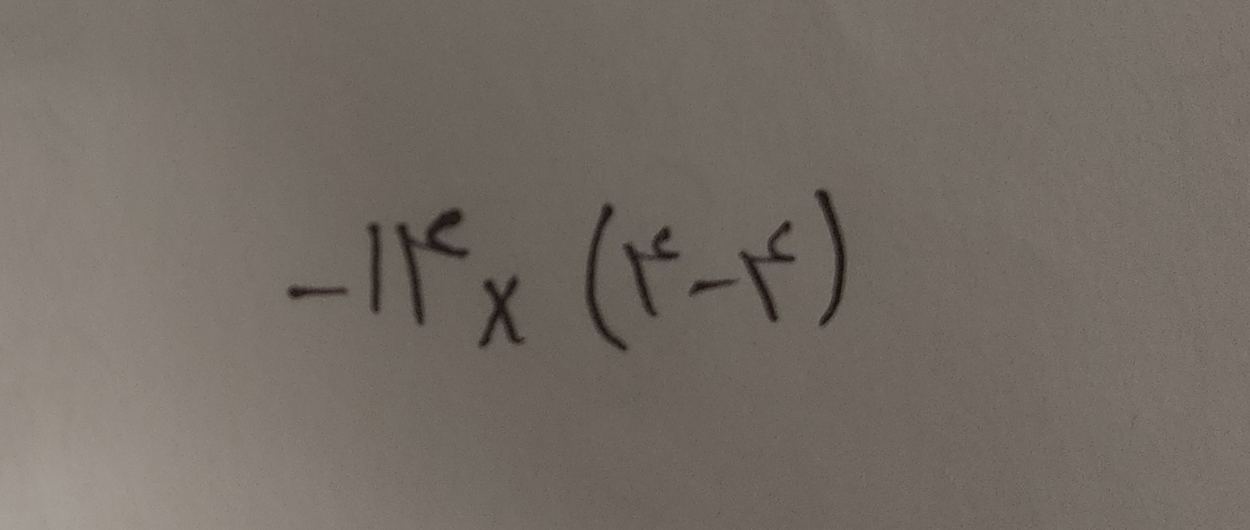 -۱۴ × (۴-۴)